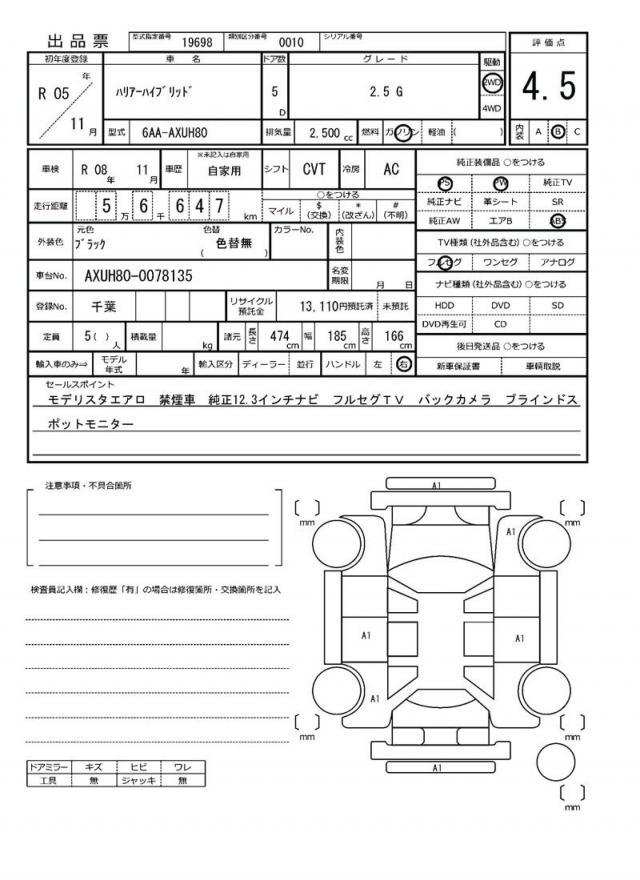 出品票 型式指定番号 19698 類別区分番号 0010 シリアル番号
評価点
4.5
内装 A B C
初年度登録 車名 ドア数 グレード 駆動
R 05 年 11 月 ﾊﾘｱｰﾊｲﾌﾞﾘｯﾄﾞ 5 D 2.5 G 2WD 4WD
型式 6AA-AXUH80 排気量 2,500 cc 燃料 ガソリン 軽油 ( )
車検 R 08 年 11 月 車歴 ※未記入は自家用 自家用 シフト CVT 冷房 AC
走行距離 5 万 6 千 6 4 7 km ○をつける
マイル $ (交換) * (改ざん) # (不明)
外装色 元色 ﾌﾞﾗｯｸ 色替 ( 色替無 ) カラーNo. 内装色
車台No. AXUH80-0078135 名変期限 月 日
登録No. 千葉 リサイクル預託金 13,110円預託済 未預託
定員 5( ) 人 積載量 kg 諸元 長さ 474 cm 幅 185 cm 高さ 166 cm
輸入車のみ⇨ モデル年式 年 輸入区分 ディーラー 並行 ハンドル 左 右
純正装備品 ○をつける
PS PW 純正TV
純正ナビ 革シート SR
純正AW エアB ABS
TV種類(社外品含む)○をつける
フルセグ ワンセグ アナログ
ナビ種類(社外品含む)○をつける
HDD DVD SD
DVD再生可 CD
後日発送品 ○をつける
新車保証書 車輌取説
セールスポイント
モデリスタエアロ 禁煙車 純正12.3インチナビ フルセグＴＶ バックカメラ ブラインドス
ポットモニター
注意事項・不具合箇所
検査員記入欄：修復歴「有」の場合は修復箇所・交換箇所を記入
A1
[ ] mm [ ] mm
A1
A1 A1
A1
[ ] mm [ ] mm
A1
[ ] mm
ドアミラー キズ ヒビ ワレ
工具 無 ジャッキ 無